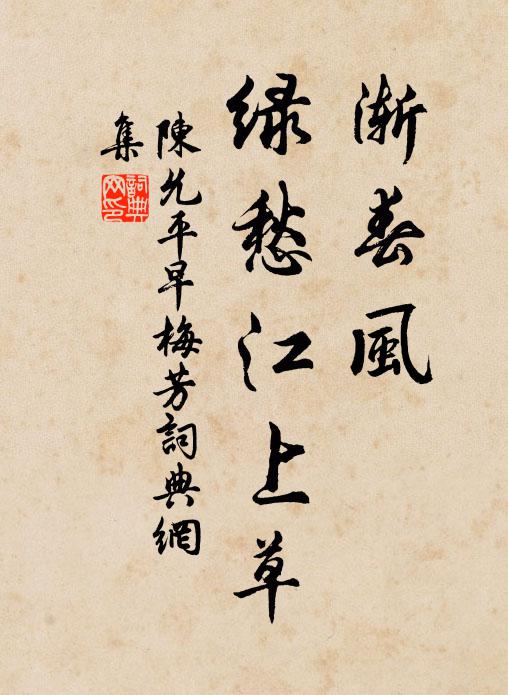 漸春風
綠愁江上草
陳允平早梅芳詞典網
集
詞典
网印